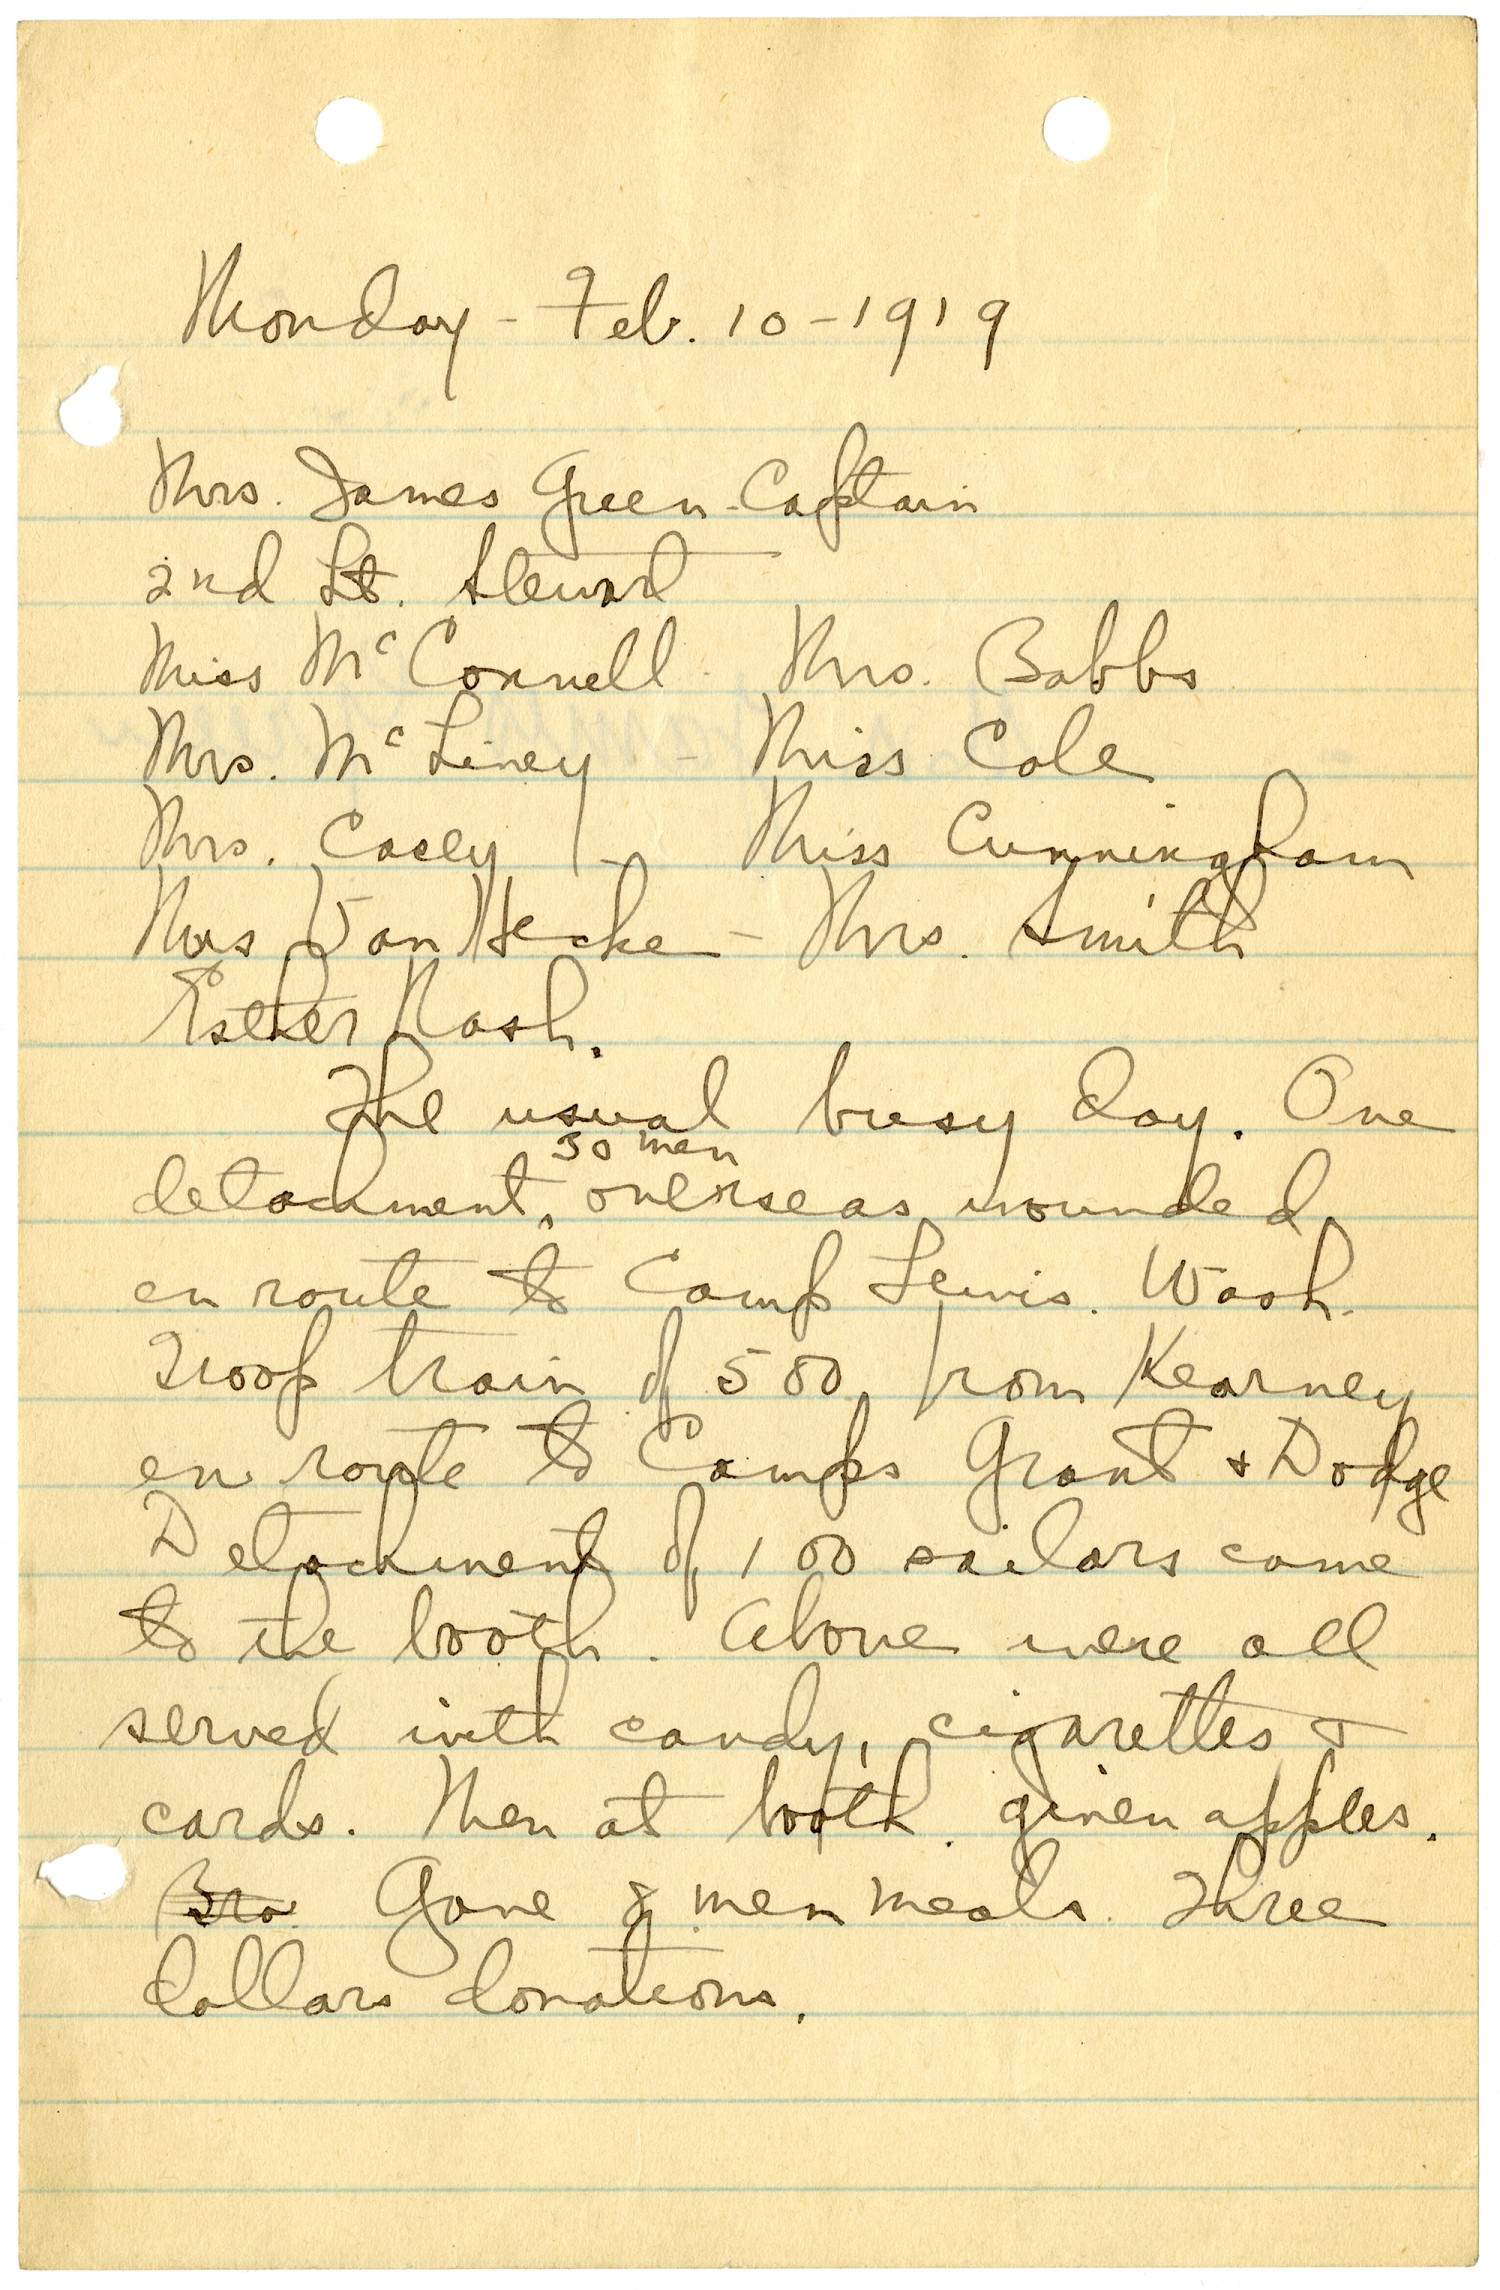 Monday - Feb. 10 - 1919
Mrs. James Green - Captain
2nd Lt. Stewart
Miss McConnell Mrs. Babbs
Mrs. McLiney - Miss Cole
Mrs. Casey - Miss Cunningham
Mrs Van Hecke - Mrs. Smith
Esther Nash.
The usual busy day. One
50 men
detachment, overseas wounded
en route to Camp Lewis. Wash.
Troop train of 500 from Kearney
en route to Camps Grant & Dodge
Detachment of 100 sailors came
to the booth. Above were all
served with candy, cigarettes &
cards. Men at booth given apples.
Bro Gave 8 men meals. Three
dollars donations.